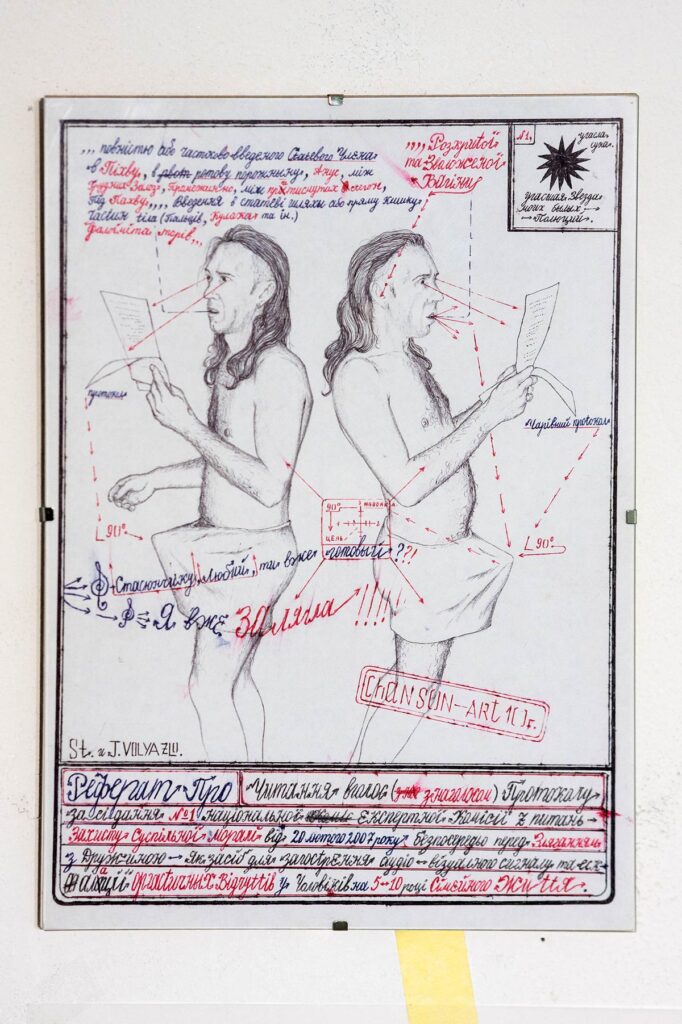 ,,, повністю або частково введеного Статевого Члена
в Піхву, в ротову порожнину, Анус, між
Грудних Залоз, Промежинно, між притиснутих стегон,
Під Пахву,,,, Введення в статеві шляхи або пряму кишку
частин тіла (Пальців, Кулака та ін.)
Фалоіміта торів,,,
,,,, Розкритої
та Зволоженої
Вагіни
№1,
угасла
сука.
угасшая Звезда
моих былых
Полюций.
протокол
Чарівний протокол
90°
90°
90°
ЦЕЛЬ
Стасюнчіку, Любий, ти вже готовый ??!
Я вже ЗАлягла !!!!!
ChaNSON-ART 10г.
St. и J. VOLYAZLU.
Реферат Про Читання вголос (з наголосом) Протоколу
засідання №1 Національної Експертної Комісії з питань
Захисту Суспільної Моралі від 20 лютого 2007 року безпосередьо перед Зляганням
з Дружиною Як засіб для загострення аудіо - візуального сигналу та еск
алації оргастичних Відчуттів у Чоловіків на 5-10 році Сімейного Життя.